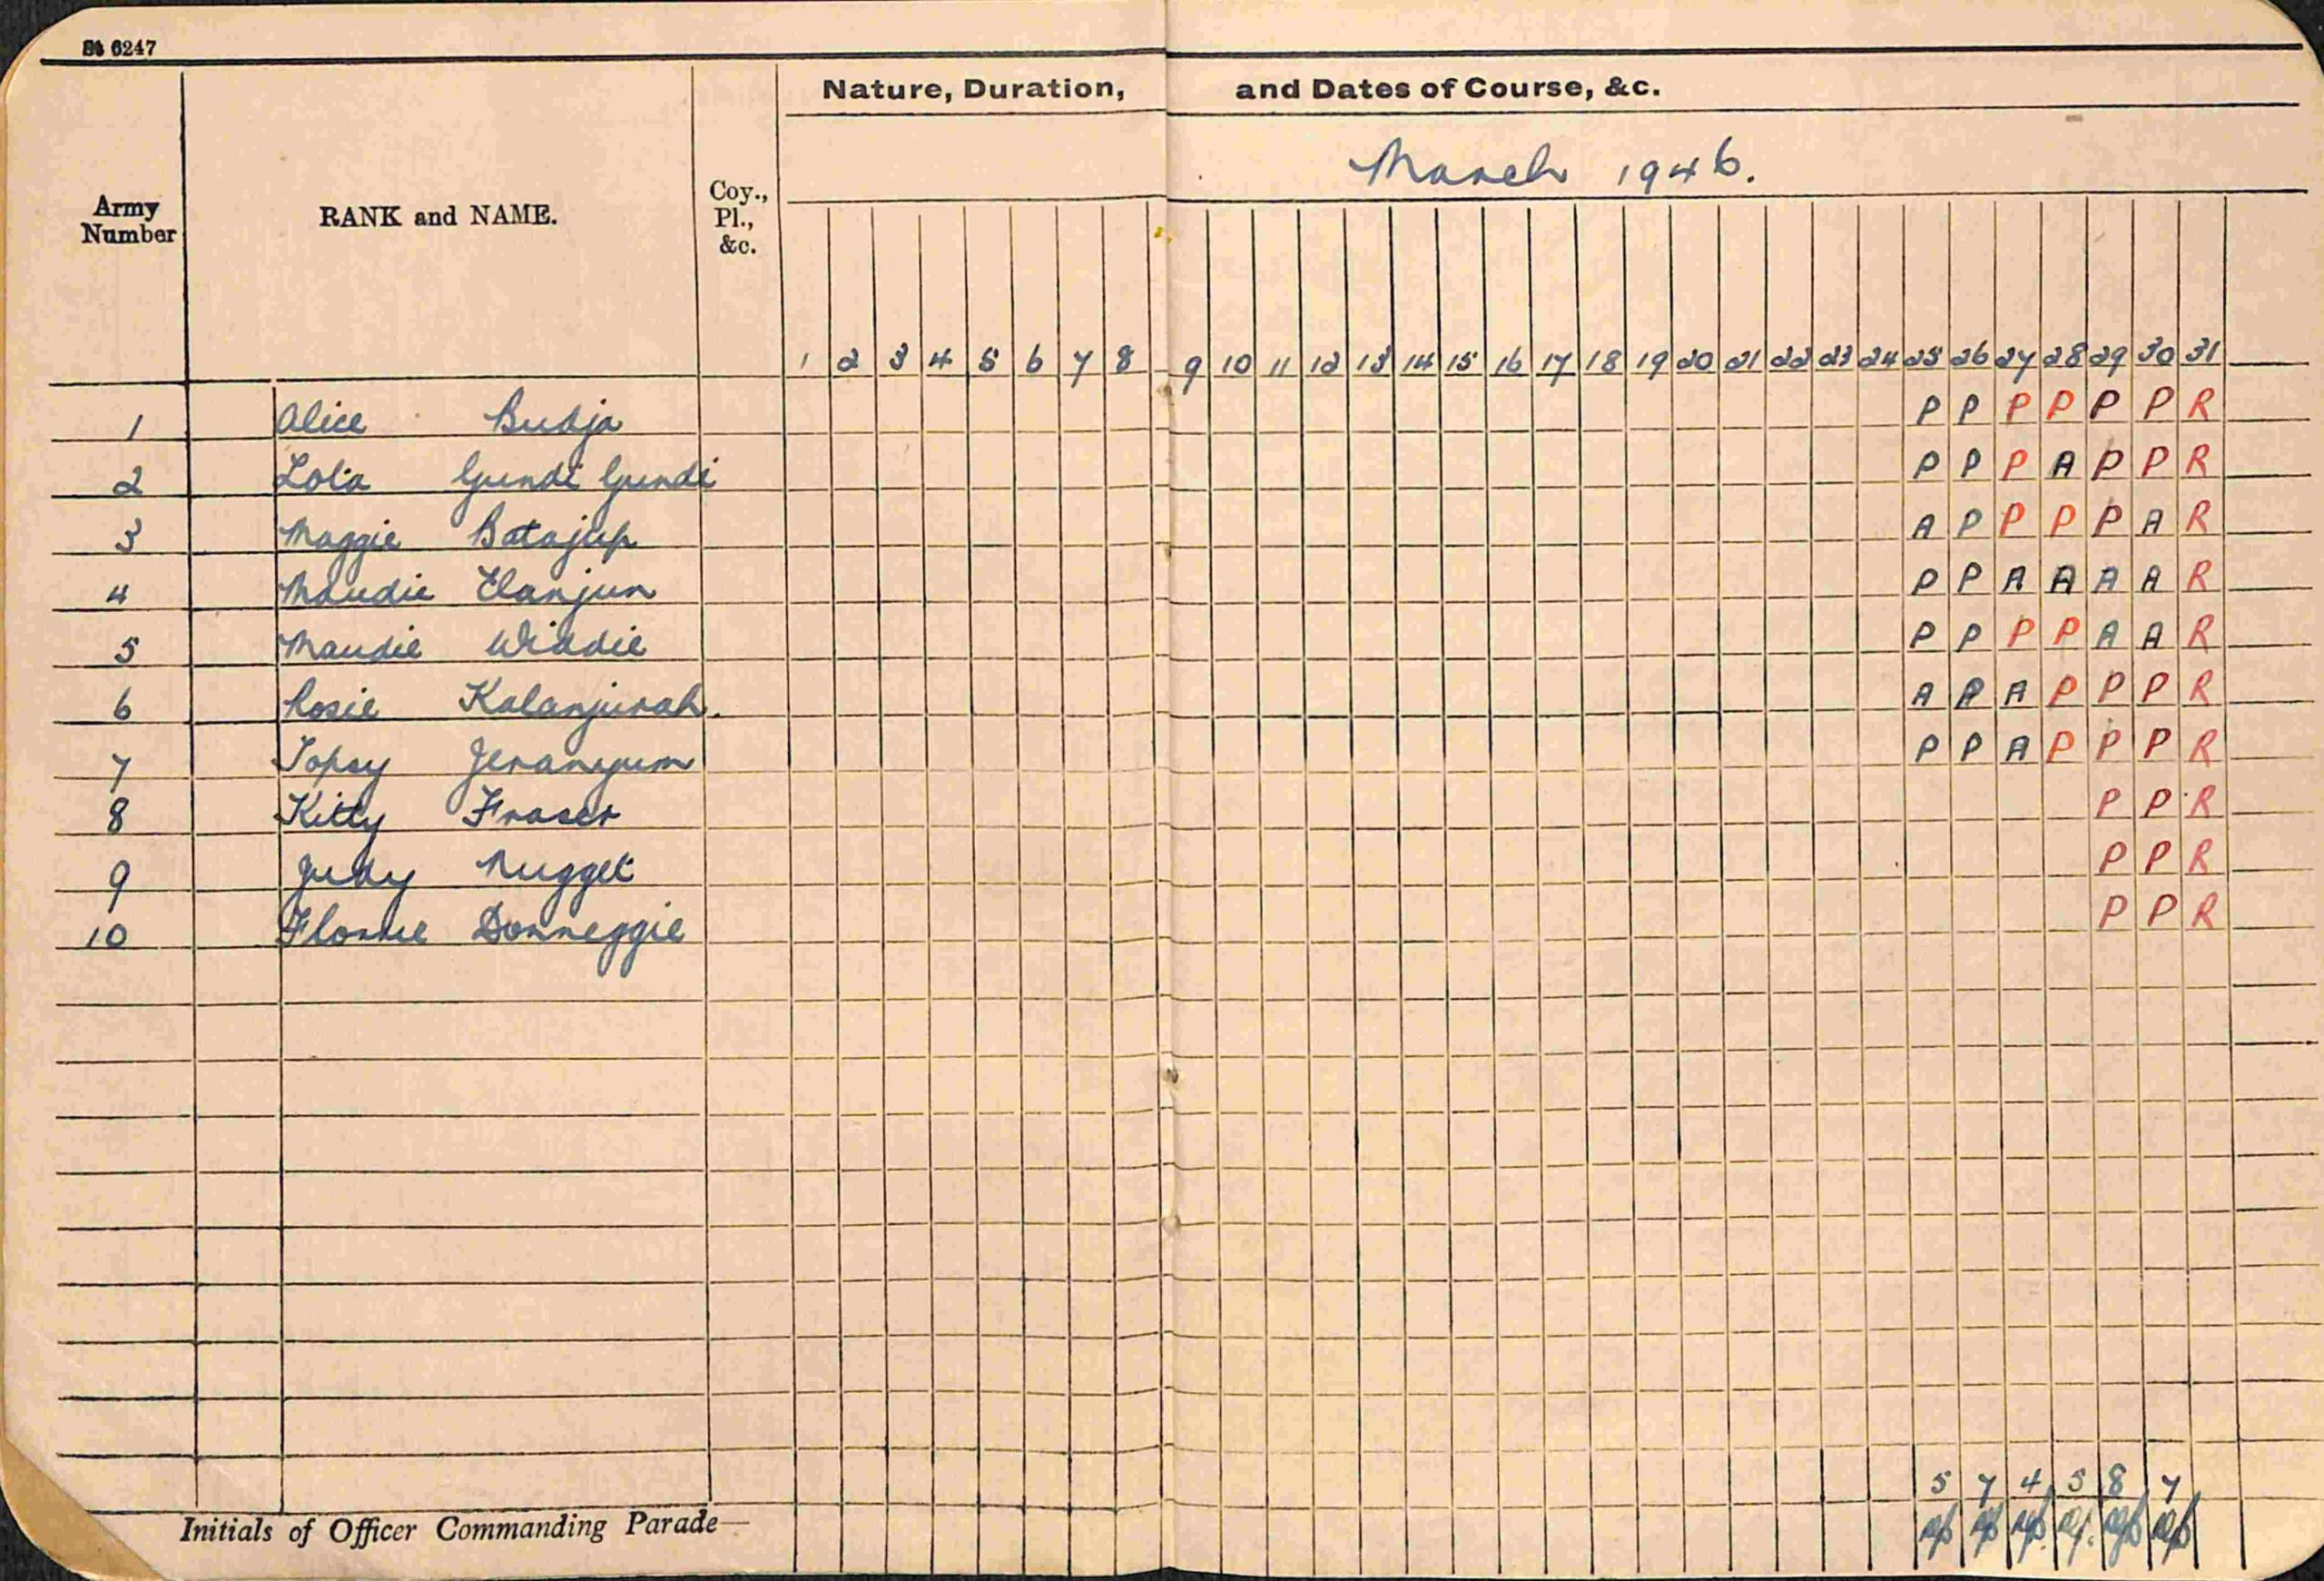 St 6247
Nature, Duration, and Dates of Course, &c.
March 1946.
Army Number RANK and NAME. Coy., Pl., &c.
1 2 3 4 5 6 7 8 9 10 11 12 13 14 15 16 17 18 19 20 21 22 23 24 25 26 27 28 29 30 31
1 Alice Budja P P P P P P R
2 Lola Gundi Gundi P P P A P P R
3 Maggie Batajup A P P P P A R
4 Maudie Elanjun P P A A A A R
5 Maudie Widdie P P P P A A R
6 Rosie Kalanjurah. A A P P P R
7 Topsy Jeranyum P P A P P P R
8 Kitty Fraser P P R
9 Judy Nugget P P R
10 Florrie Donneggie P P R
5 7 4 5 8 7
Initials of Officer Commanding Parade—